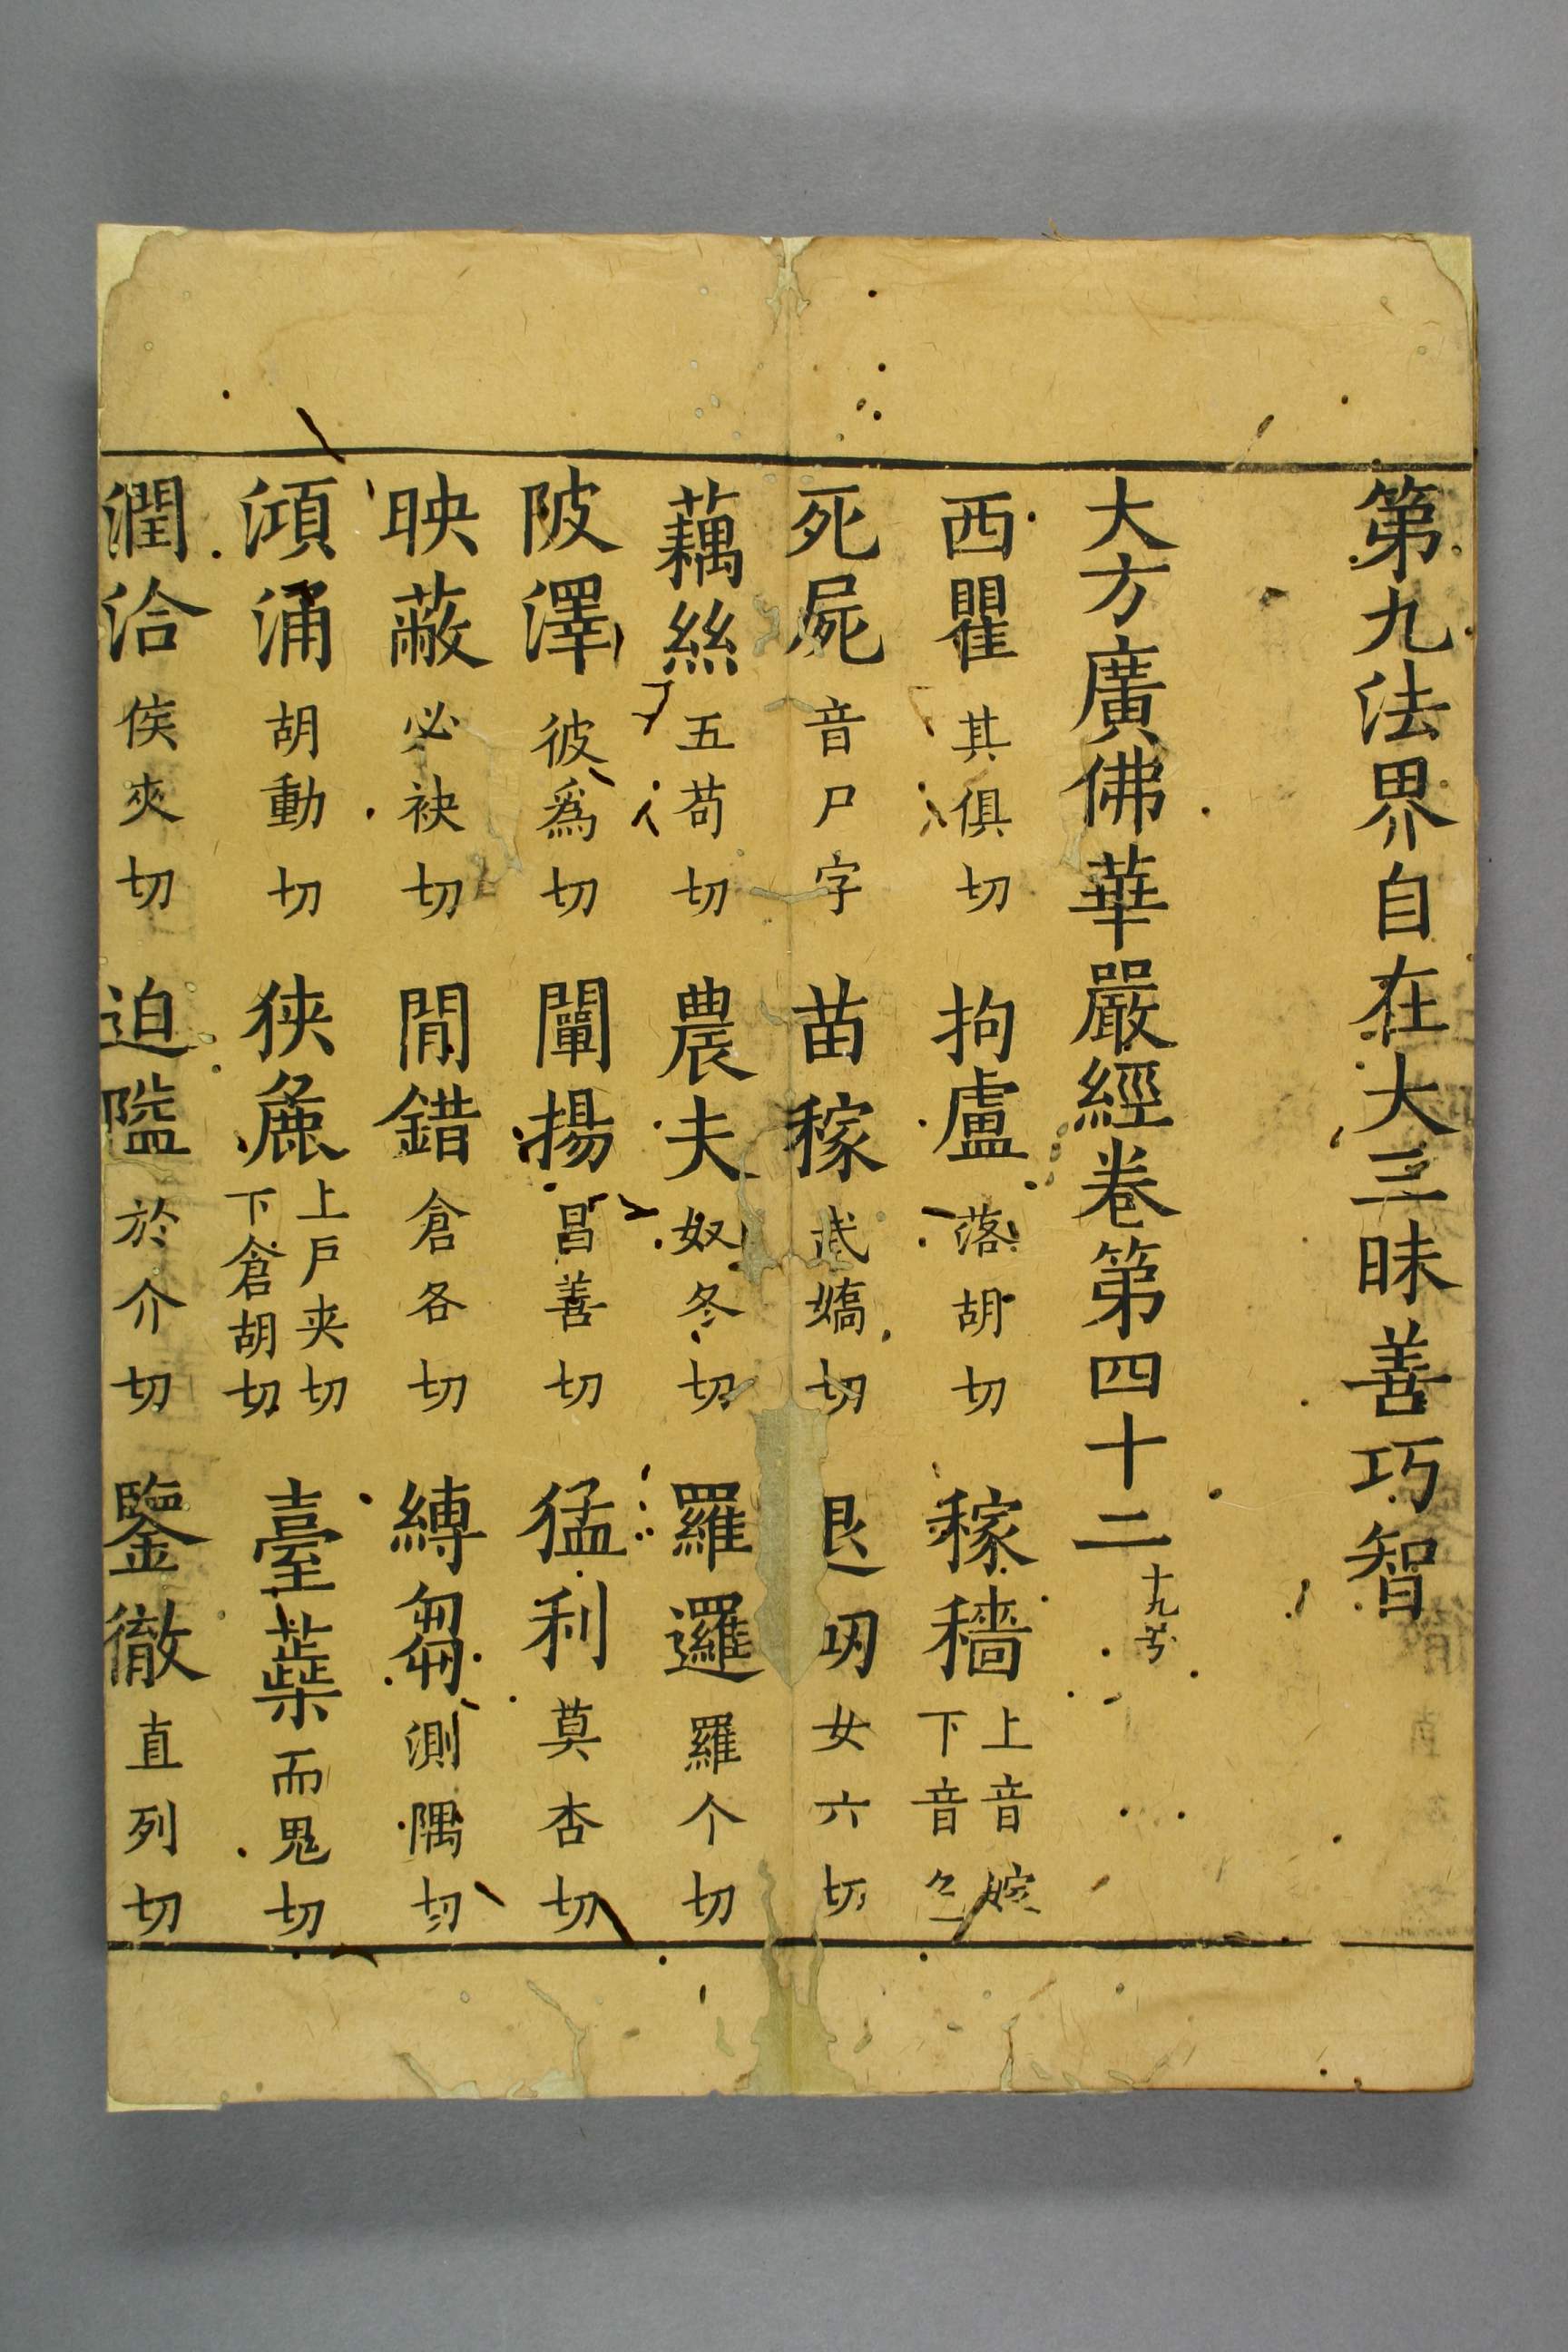 第九法界自在大三昧善巧智
大方廣佛華嚴經卷第四十二 十九
西瞿 其俱切 拘盧 落胡切 稼穡 上音嫁 下音色
死屍 音尸字 苗稼 武嬌切 退㘝 女六切
藕絲 五苟切 農夫 奴冬切 羅邏 羅个切
陂澤 彼爲切 闡揚 昌善切 猛利 莫杏切
映蔽 必袂切 閒錯 倉各切 縛芻 測隅切
澒涌 胡動切 狹麁 上戶夹切 下倉胡切 臺蘂 而鬼切
潤洽 侯夾切 迫隘 於介切 鑒徹 直列切